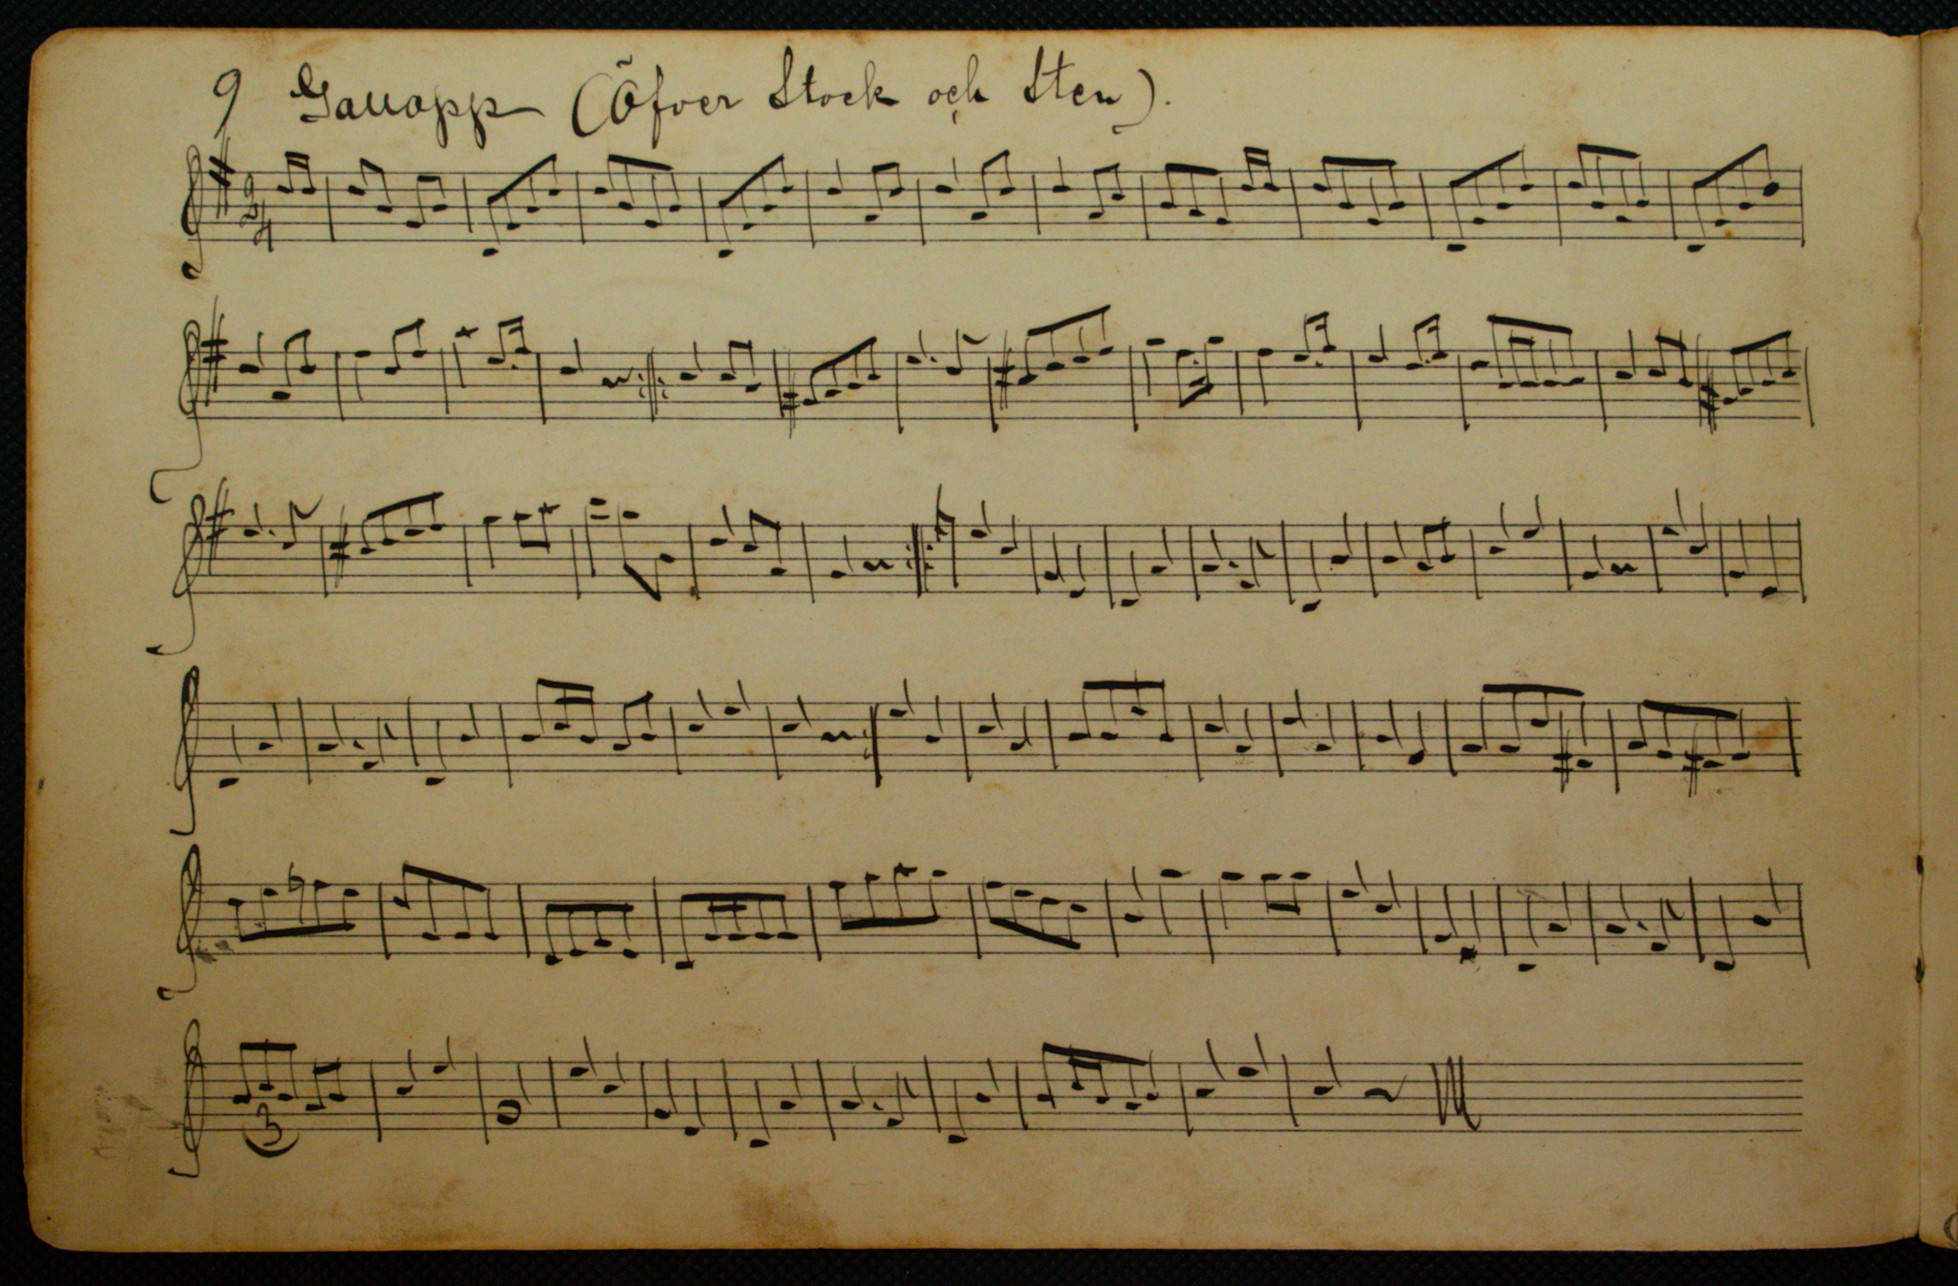 9 Gauapp (Öfver Stock och Sten).
2/4
3